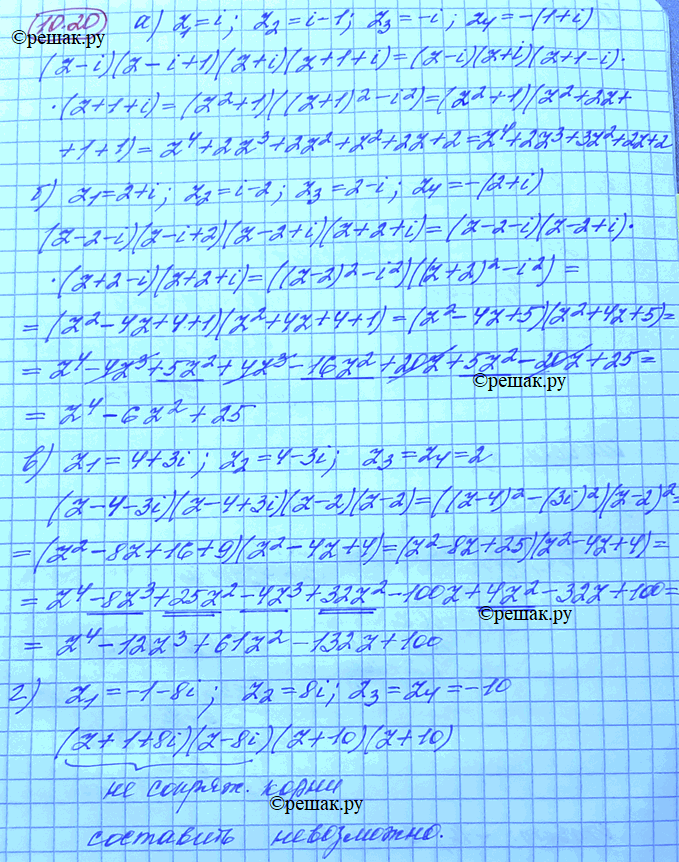 10.20 а) z₁=i; z₂=i-1; z₃=-i; z₄=-(1+i)
©решак.ру
©решак.ру
(z-i)(z-i+1)(z+i)(z+1+i)=(z-i)(z+i)(z+1-i)·
·(z+1+i)=(z²+1)((z+1)²-i²)=(z²+1)(z²+2z+
+1+1)=z⁴+2z³+2z²+z²+2z+2=z⁴+2z³+3z²+2z+2
б) z₁=2+i; z₂=i-2; z₃=2-i; z₄=-(2+i)
(z-2-i)(z-i+2)(z-2+i)(z+2+i)=(z-2-i)(z-2+i)·
·(z+2-i)(z+2+i)=((z-2)²-i²)((z+2)²-i²)=
=(z²-4z+4+1)(z²+4z+4+1)=(z²-4z+5)(z²+4z+5)=
=z⁴-4z³+5z²+4z³-16z²+20z+5z²-20z+25=
©решак.ру
=z⁴-6z²+25
в) z₁=4+3i; z₂=4-3i; z₃=z₄=2
(z-4-3i)(z-4+3i)(z-2)(z-2)=((z-4)²-(3i)²)(z-2)²=
=(z²-8z+16+9)(z²-4z+4)=(z²-8z+25)(z²-4z+4)=
=z⁴-8z³+25z²-4z³+32z²-100z+4z²-32z+100=
©решак.ру
=z⁴-12z³+61z²-132z+100
г) z₁=-1-8i; z₂=8i; z₃=z₄=-10
(z+1+8i)(z-8i)(z+10)(z+10)
не сопряж. корни
©решак.ру
составить невозможно.